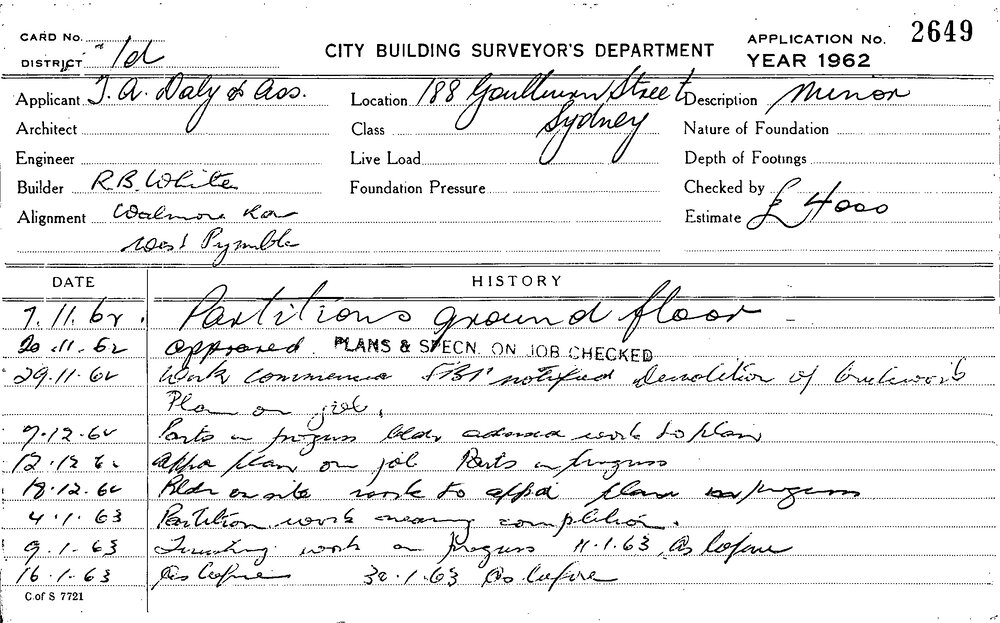 CARD No.
DISTRICT 1d
CITY BUILDING SURVEYOR'S DEPARTMENT
APPLICATION No. 2649
YEAR 1962
Applicant T. A. Daly & Ass. Location 188 Goulburn Street Description Minor
Architect Class Sydney Nature of Foundation
Engineer Live Load Depth of Footings
Builder R.B. White Foundation Pressure Checked by
Alignment Estimate £ 4000
West Pymble
DATE HISTORY
7.11.62. Partitions ground floor
20.11.62 approved PLANS & SPECN. ON JOB CHECKED
29.11.62 Work commenced notified Demolition of brickwork
Plan on job.
7.12.62 Parts in progress bldr advised work to plan
12.12.62 appd plan on job Parts in progress
18.12.62 Bldr on site work to appd plan in progress
4.1.63 Partition work nearing completion.
9.1.63 Finishing work in progress 11.1.63 As before
16.1.63 As before 30.1.63 As before
C. of S 7721